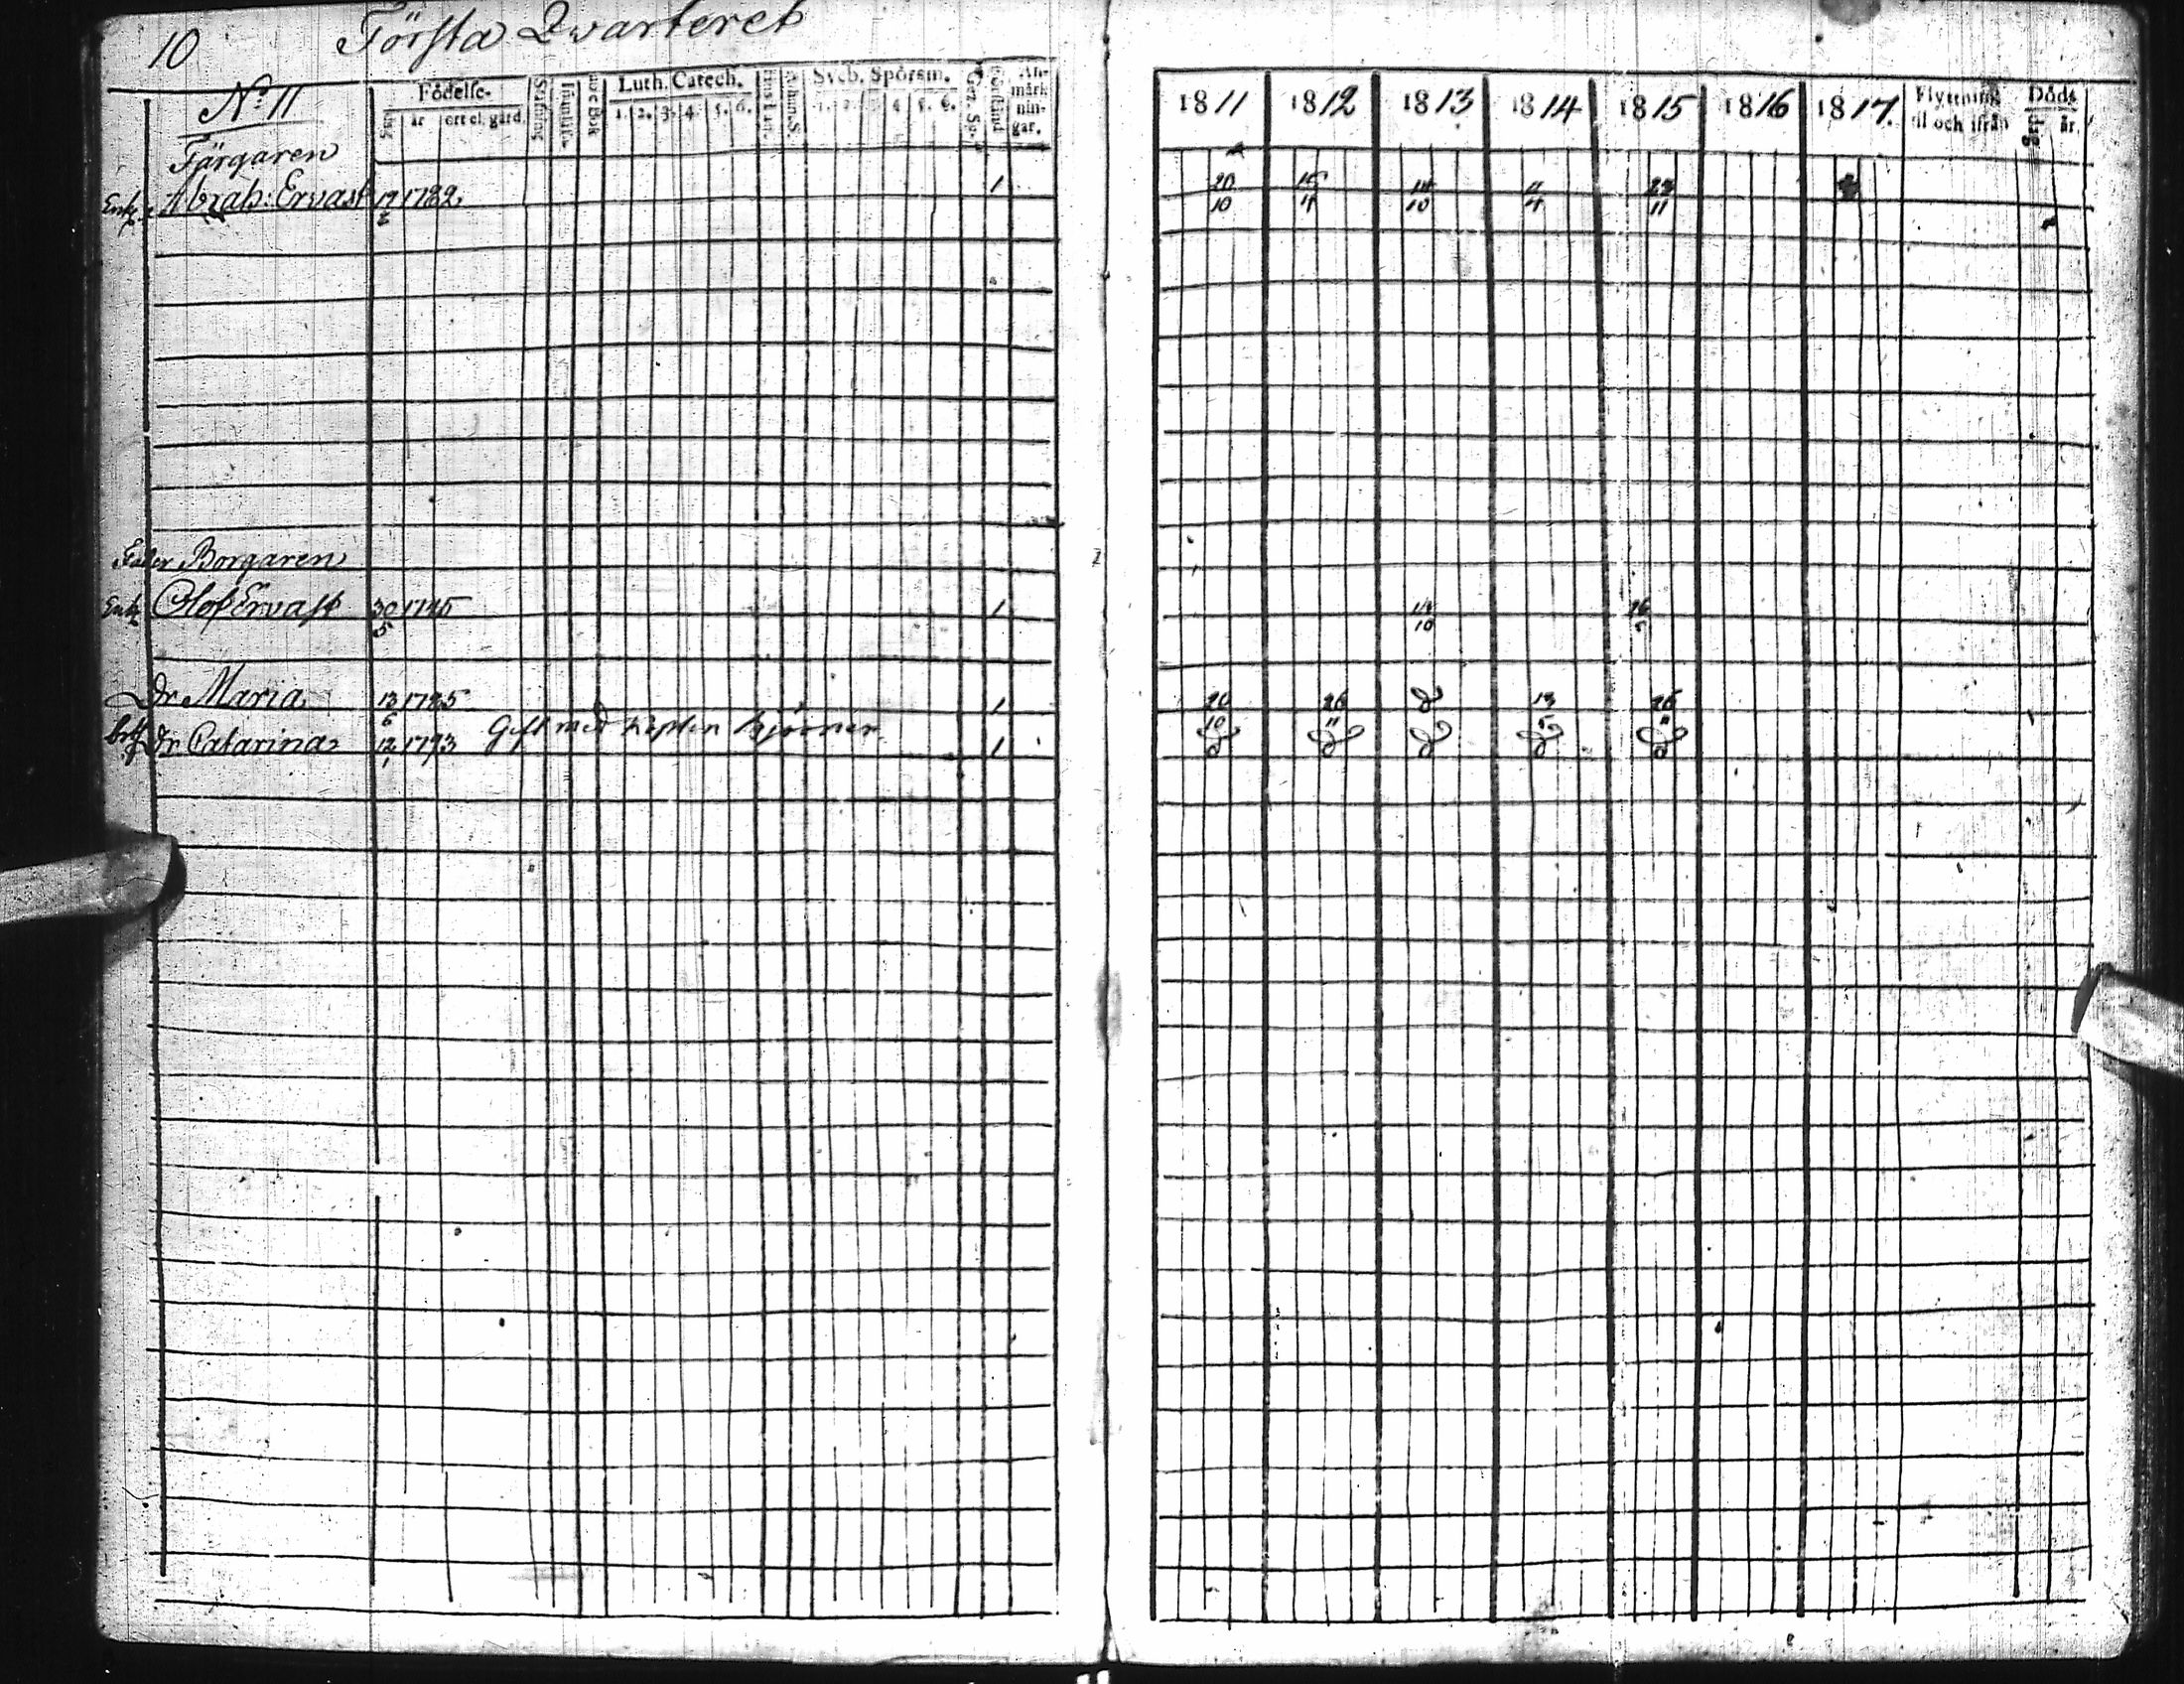 10 Första Qvarteret
No 11
Födelse- dag år ort el. gård. Luth. Catech. 1. 2. 3. 4. 5. 6. Sveb. Spörsm. 1. 2. 3. 4. 5. 6. An-märk-nin-gar.
1811 1812 1813 1814 1815 1816 1817. Flyttning til och ifrån Döds dag år.
Färgaren
Enk. Abrah: Ervast 1782. 1 20/10 15/4 10 11/4 11
Fader Borgaren
Enk. Olof Ervast 30/5 1745 1 10
Dr Maria 13/6 1785 1 20/10 26/11 d 13/5 26/11
Dr Catarina 12/1 1793 Gift med 1 d d d d d